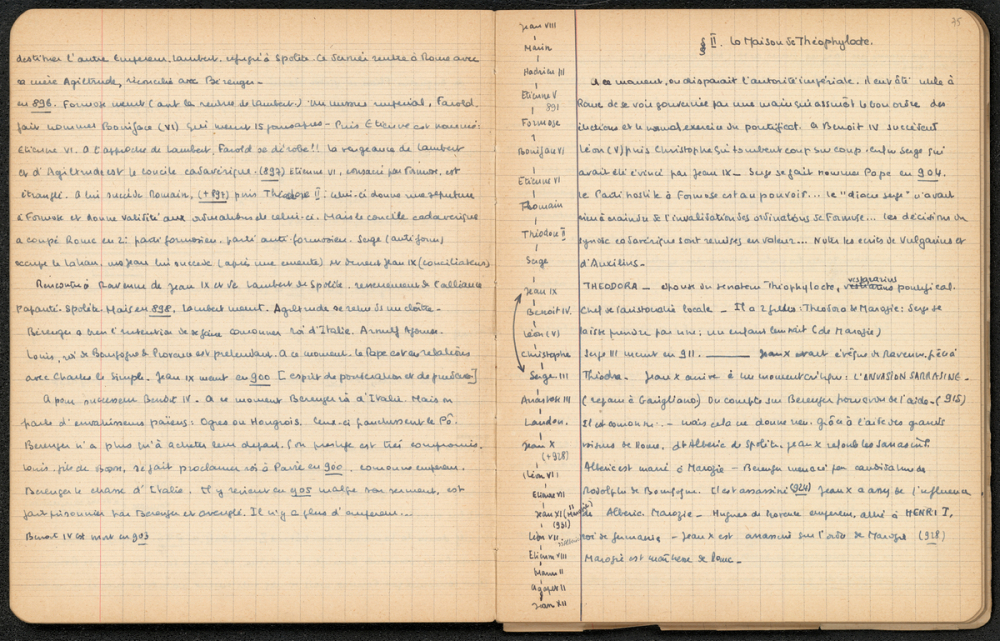 destituer l'autre empereur, Lambert, refugié à Spolete. Ce dernier rentre à Rome avec
sa mère Agiltrude, réconcilié avec Bérenger -
en 896. Formose meurt (avt la rentrée de Lambert.) Un missus impérial, Farold
fait nommer Boniface (VI) qui meurt 15 jours après - Puis Etienne est nommé:
Etienne VI. A l'approche de Lambert, Farold se dérobe!! la vengeance de Lambert
et d'Agiltrude est le concile cadavérique. (897) Etienne VI, consacré par Formose, est
étranglé. A lui succède Romain, (+897) puis Théodore II: celui-ci donne une sépulture
à Formose et donne validité aux ordinations de celui-ci. Mais le concile cadavérique
a coupé Rome en 2: parti formosien, parti anti-formosien. Serge (antiform)
occupe le Latran, mais Jean lui succède (après une émeute) et devient Jean IX (conciliateur)
Rencontre à Ravenne de Jean IX et de Lambert de Spolète. resserrement de l'alliance
Papauté-Spolète. Mais en 898, Lambert meurt. Agiltrude se retire ds un cloître -
Bérenger a bien l'intention de se faire couronner roi d'Italie. Arnulf
Louis, roi de Bourgogne et Provence est prétendant. A ce moment le Pape est en relations
avec Charles le Simple. Jean IX meurt en 900 [esprit de pondération et de précision]
A pour successeur Benoit IV. A ce moment Bérenger roi d'Italie. Mais on
parle d'envahisseurs païens: Ogres ou Hongrois. Ceux-ci franchissent le Pô.
Bérenger n'a plus qu'à acheter leur départ. Son prestige est très compromis.
Louis, fils de Boson, se fait proclamer roi à Pavie en 900, couronné empereur.
Bérenger le chasse d'Italie. Il y revient en 905 malgré son serment, est
fait prisonnier par Bérenger et aveuglé. Il n'y a plus d'empereur...
Benoit IV est mort en 903
Jean VIII
Marin
Hadrien III
Etienne V
891
Formose
Boniface VI
Etienne VI
Romain
Théodore II
Serge
Jean IX
Benoit IV.
Léon (V)
Christophe
Serge III
Anastase III
Landon.
Jean X
(+928)
(Léon VI)
Etienne VII
Jean XI
(931)
Léon VII
Etienne VIII
Marin II
Agapet II
Jean XII
75
§ II. La Maison de Théophylacte.
A ce moment, on disparait l'autorité impériale. Il eut été utile à
Rome de se voir gouvernée par une main qui assurât le bon ordre des
élections et le normal exercice du pontificat. A Benoit IV succèdent
Léon (V) puis Christophe qui tombent coup sur coup. Enfin Serge qui
avait été évincé par Jean IX - Serge se fait nommer Pape en 904.
le Parti hostile à Formose est au pouvoir... le "diacre Serge" n'avait
rien à craindre de l'invalidation des ordinations de Formose... les décisions du
synode cadavérique sont remises en valeur... Noter les écrits de Vulgarius et
d'Auxilius -
THEODORA - épouse du sénateur Théophylacte, vestararius pontifical.
Chef de l'aristocratie locale - Il a 2 filles: Théodora et Marozie: Serge se
laisse prendre par une: un enfant lui nait (de Marozie)
Serge III meurt en 911. ——— Jean X avait évêque de Ravenne,
Théodora. Jean X arrive à un moment critique: L'INVASION SARRASINE -
(repaire à Garigliano) On compte sur Bérenger pour avoir de l'aide. (915)
Il est couronné - mais cela ne donne rien. grâce à l'aide des grands
voisins de Rome, et Albéric de Spolète, Jean X refoule les Sarrasins.
Albéric est marié à Marozie - Bérenger menacé par candidature de
Rodolphe de Bourgogne. Il est assassiné (924) Jean X a assez de l'influence
de Albéric Marozie - Hugues de Provence empereur, allié à HENRI I,
roi de Germanie - Jean X est assassiné sur l'ordre de Marozie (928)
Marozie est maîtresse de Rome -